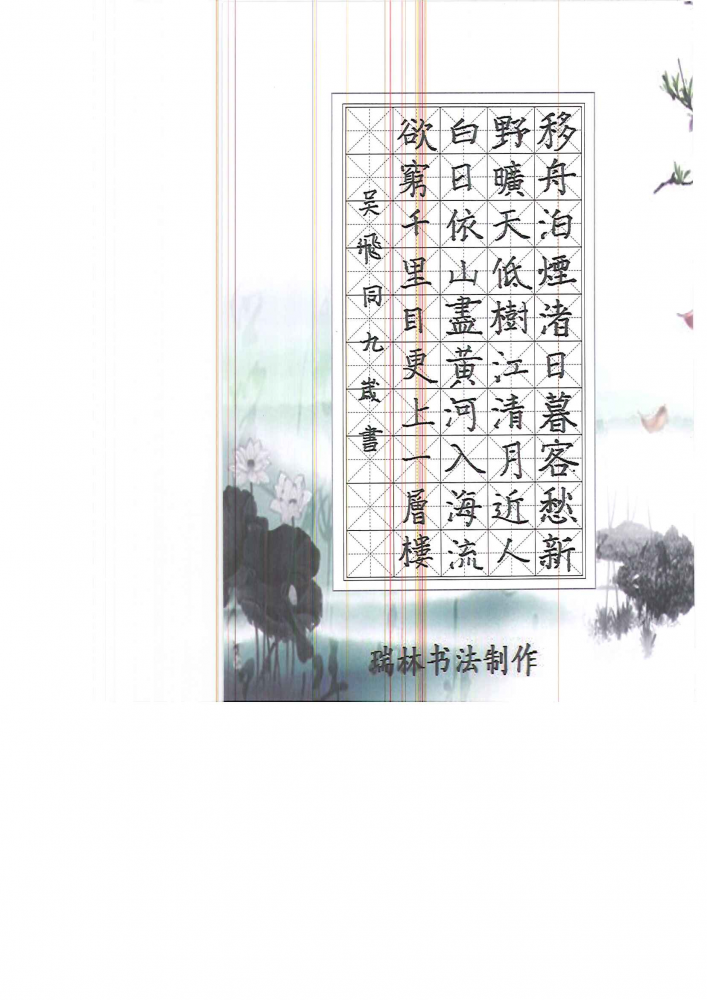 移舟泊煙渚日暮客愁新
野曠天低樹江清月近人
白日依山盡黃河入海流
欲窮千里目更上一層樓
吴飛同九歲書
瑞林书法制作